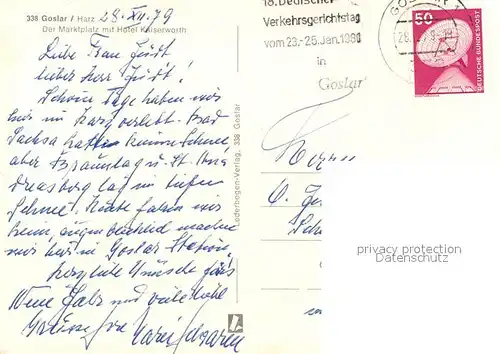 338 Goslar / Harz 28.XII.79
Der Marktplatz mit Hotel Kaiserworth
Liebe Frau Jüdt
lieber Herr Jüdt!
Schöne Tage haben wir
wir im Harz verlebt. Bad
Sachsa hatte keinen Schnee
aber Braunlag u. St. An
dreasberg lag im tiefen
Schnee. Heute fahren wir
heim, augenblicklich machen
wir hier in Goslar Station,
herzliche Wünsche fürs
Neue Jahr und viele liebe
Grüsse Ihre
Lederbogen-Verlag, 338 Goslar
18. Deutscher
Verkehrsgerichtstag
vom 23.-25. Jan. 1980
in
Goslar
GOSLAR 1
50
DEUTSCHE BUNDESPOST
Herrn
privacy protection
Datenschutz